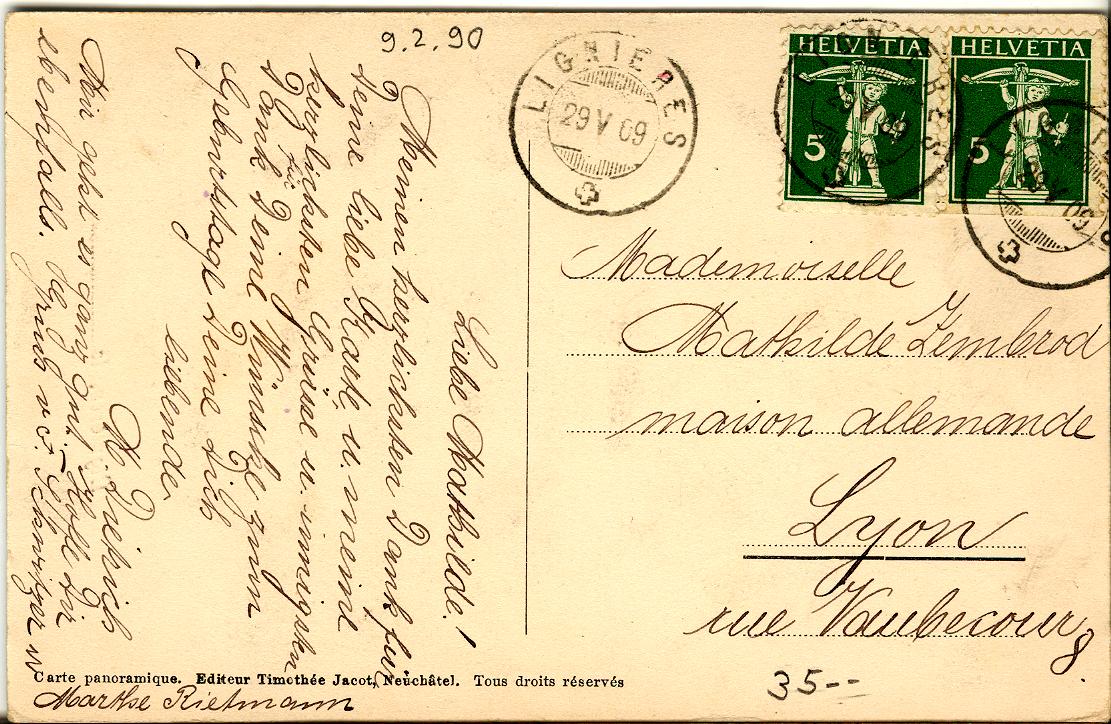 9.2.90
LIGNIERES
29 V 09
HELVETIA
5
LIGNIERES
29 V 09
HELVETIA
5
29 V 09
Liebe Mathilde!
Meinen herzlichsten Dank für
Deine liebe Karte, u. meine
herzlichsten Grüsse u. innigsten
Dank für Deine Wünsche zum
Geburtstage Deine Dich
liebende
Mir geht es ganz gut. Hoffe Dir
ebenfalls. Gruss v. F. Schwitzer u.
Marthe Rietmann
Mademoiselle
Mathilde Zembrod
maison allemande
Lyon
rue Vaubecour 8.
Carte panoramique. Editeur Timothée Jacot, Neuchâtel. Tous droits réservés
35--